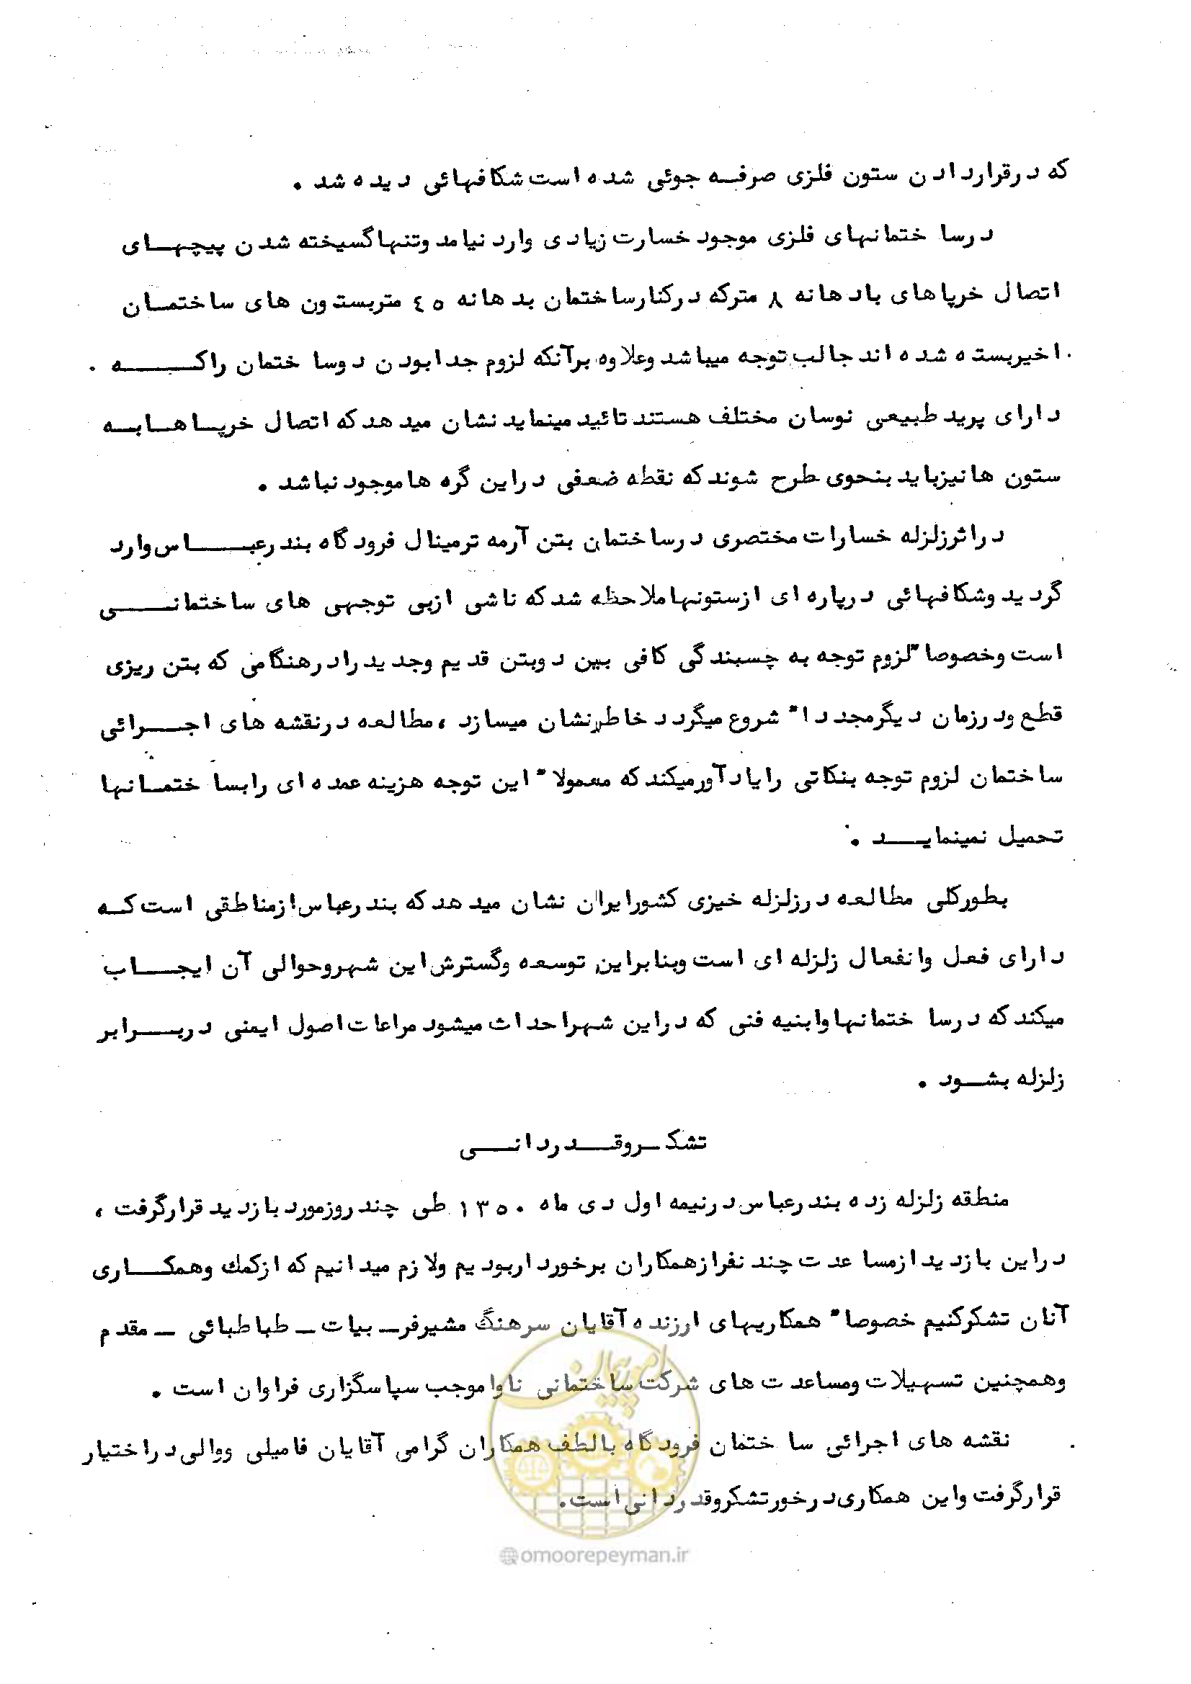 که درقراردادن ستون فلزی صرفه جوئی شده است شکافهائی دیده شد .
درساختمانهای فلزی موجود خسارت زیادی وارد نیامد وتنها گسیخته شدن پیچهای
اتصال خرپاهای بادهانه ۸ مترکه درکنارساختمان بدهانه ٤٥ متربستون های ساختمان
اخیربسته شده اند جالب توجه میباشد وعلاوه برآنکه لزوم جدابودن دوساختمان راکه
دارای پرید طبیعی نوسان مختلف هستند تائید مینماید نشان میدهد که اتصال خرپاها به
ستون ها نیزباید بنحوی طرح شوند که نقطه ضعفی دراین گره ها موجود نباشد .
دراثرزلزله خسارات مختصری درساختمان بتن آرمه ترمینال فرودگاه بندرعباس وارد
گردید وشکافهائی درپاره ای ازستونها ملاحظه شد که ناشی ازبی توجهی های ساختمانی
است وخصوصا" لزوم توجه به چسبندگی کافی بین دوبتن قدیم وجدید رادرهنگامی که بتن ریزی
قطع ودرزمان دیگرمجددا" شروع میگردد خاطرنشان میسازد ، مطالعه درنقشه های اجرائی
ساختمان لزوم توجه بنکاتی را یادآورمیکند که معمولا" این توجه هزینه عمده ای رابساختمانها
تحمیل نمینماید .
بطورکلی مطالعه درزلزله خیزی کشورایران نشان میدهد که بندرعباس ازمناطقی است که
دارای فعل وانفعال زلزله ای است وبنابراین توسعه وگسترش این شهروحوالی آن ایجاب
میکند که درساختمانها وابنیه فنی که دراین شهراحداث میشود مراعات اصول ایمنی دربرابر
زلزله بشود .
تشکروقدردانی
منطقه زلزله زده بندرعباس درنیمه اول دی ماه ۱۳۵۰ طی چند روزمورد بازدید قرارگرفت ،
دراین بازدید ازمساعدت چند نفرازهمکاران برخورداربودیم ولازم میدانیم که ازکمك وهمکاری
آنان تشکرکنیم خصوصا" همکاریهای ارزنده آقایان سرهنگ مشیرفرـ بیات ـ طباطبائی ـ مقدم
وهمچنین تسهیلات ومساعدت های شرکت ساختمانی ناوا موجب سپاسگزاری فراوان است .
نقشه های اجرائی ساختمان فرودگاه بالطف همکاران گرامی آقایان فامیلی ووالی دراختیار
قرارگرفت واین همکاری درخورتشکروقدردانی است .
امور پیمان
@omoorepeyman.ir